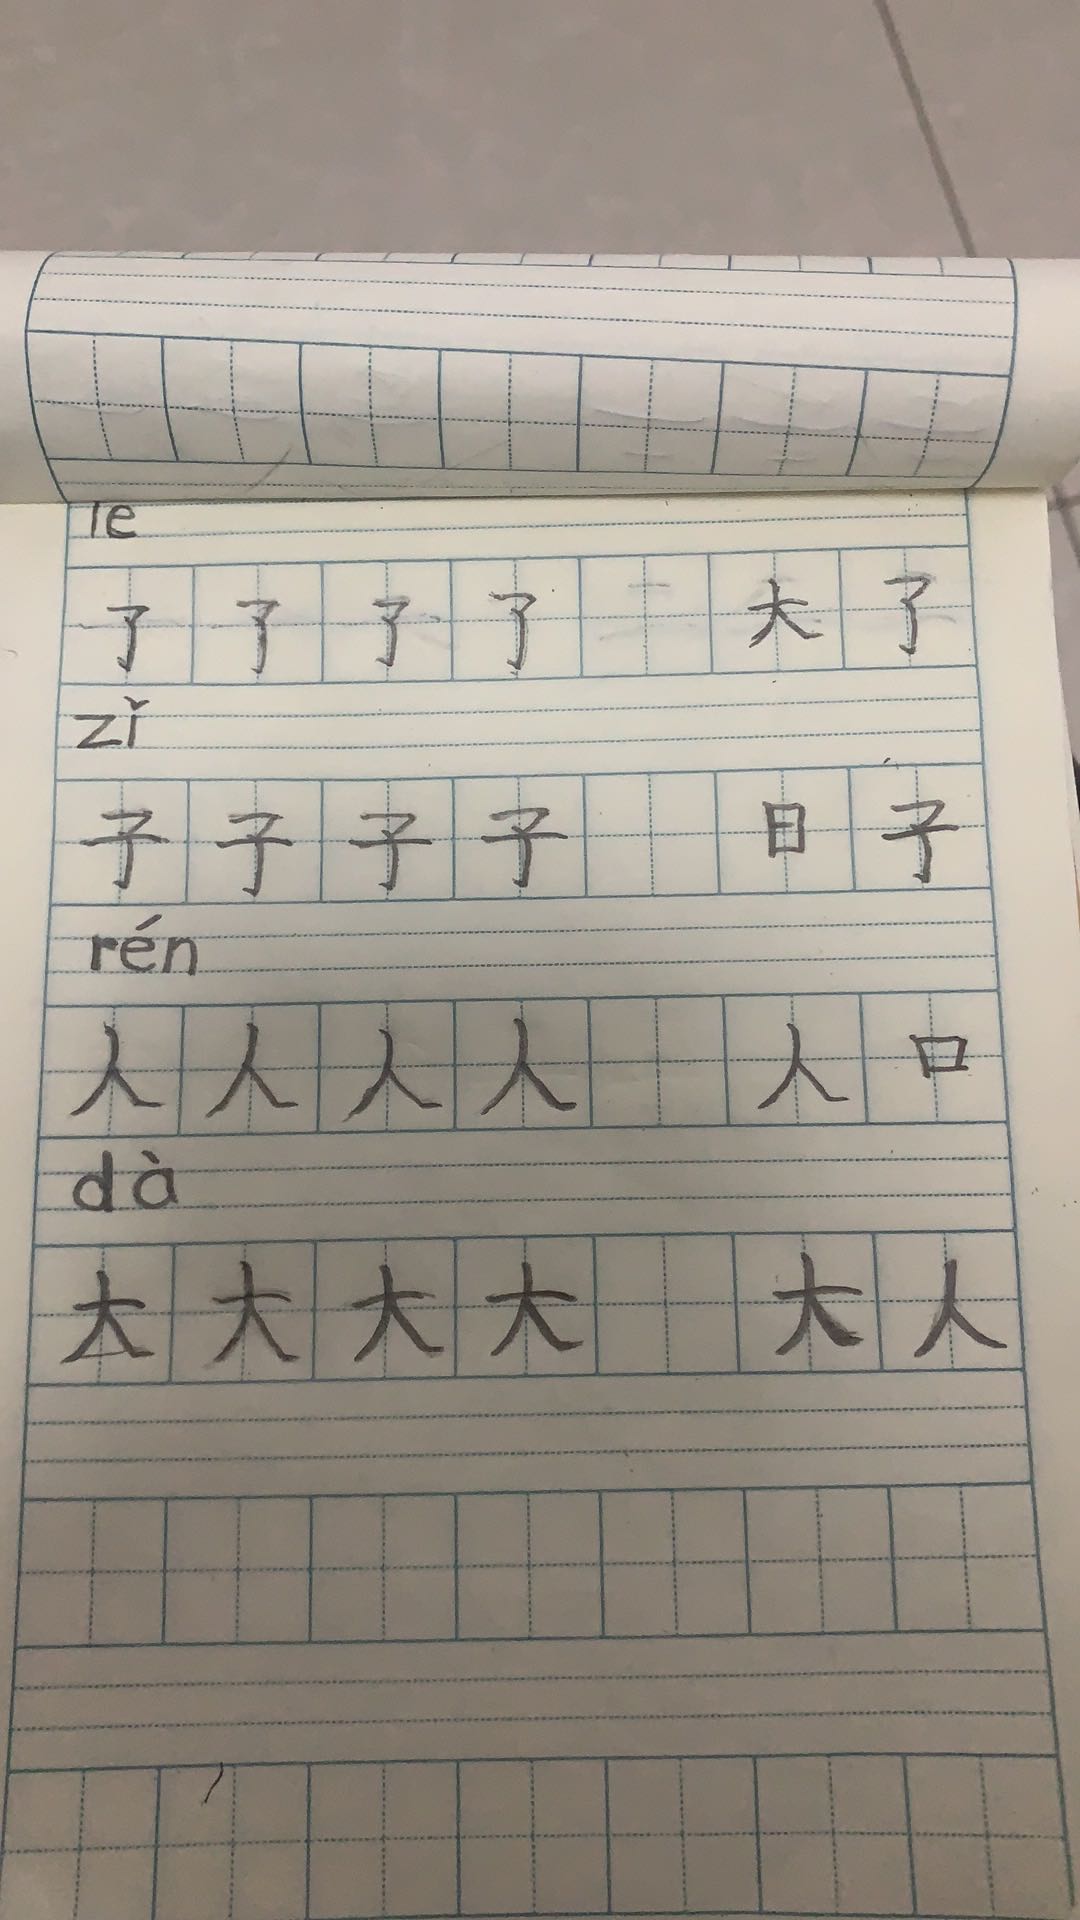 le
了 了 了 了 大 了
zǐ
子 子 子 子 日 子
rén
人 人 人 人 人 口
dà
大 大 大 大 大 人